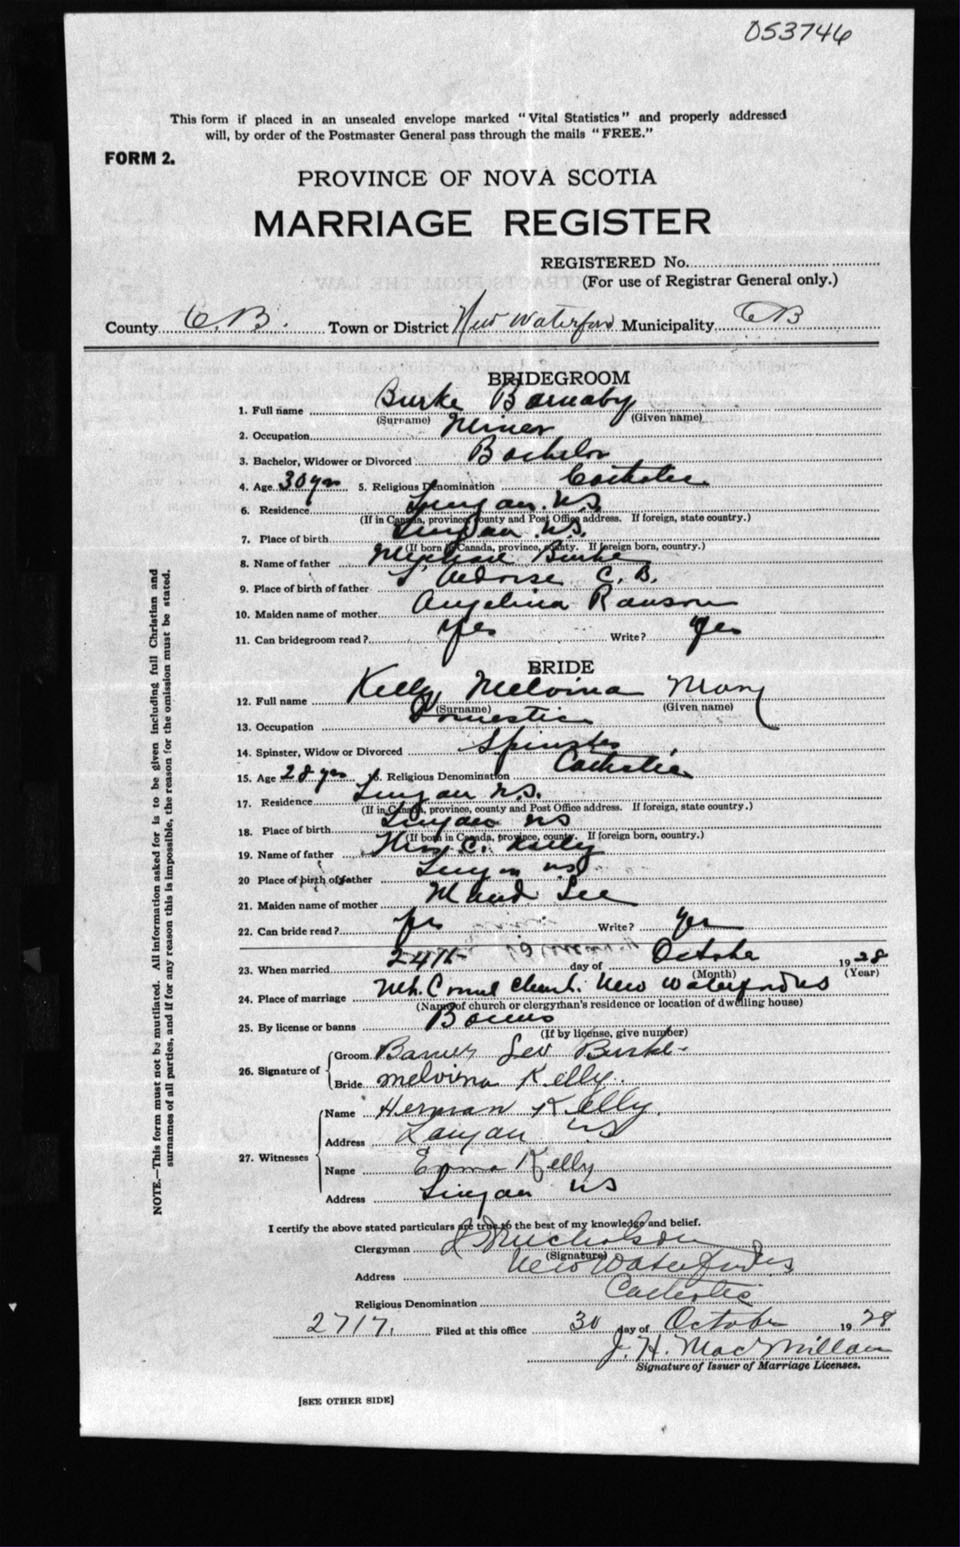 053746
This form if placed in an unsealed envelope marked "Vital Statistics" and properly addressed
will, by order of the Postmaster General pass through the mails "FREE."
FORM 2.
PROVINCE OF NOVA SCOTIA
MARRIAGE REGISTER
REGISTERED No.
(For use of Registrar General only.)
County C.B. Town or District New Waterford Municipality CB
BRIDEGROOM
1. Full name Burke Barnaby
(Surname) (Given name)
2. Occupation Miner
3. Bachelor, Widower or Divorced Bachelor
4. Age 30 yrs 5. Religious Denomination Catholic
6. Residence Lingan. N.S.
(If in Canada, province, county and Post Office address. If foreign, state country.)
7. Place of birth Lingan N.S.
(If born in Canada, province, county. If foreign born, country.)
8. Name of father Burke
9. Place of birth of father L'Ardoise C.B.
10. Maiden name of mother Angelina Ranson
11. Can bridegroom read? Yes Write? Yes
BRIDE
12. Full name Kelly Melvina Mary
(Surname) (Given name)
13. Occupation Domestic
14. Spinster, Widow or Divorced Spinster
15. Age 28 yrs 16. Religious Denomination Catholic
17. Residence Lingan N.S.
(If in Canada, province, county and Post Office address. If foreign, state country.)
18. Place of birth Lingan NS
(If born in Canada, province, county. If foreign born, country.)
19. Name of father C. Kelly
20 Place of birth of father Lingan NS
21. Maiden name of mother Maud Lee
22. Can bride read? Yes Write? Yes
23. When married 24th day of October 1928
(Month) (Year)
24. Place of marriage Mt. Carmel Church. New Waterford NS
(Name of church or clergyman's residence or location of dwelling house)
25. By license or banns Banns
(If by license, give number)
26. Signature of Groom Leo Burke
Bride Melvina Kelly.
27. Witnesses Name Herman Kelly.
Address Lingan NS
Name Emma Kelly
Address Lingan NS
I certify the above stated particulars are true to the best of my knowledge and belief.
Clergyman Nicholson
(Signature)
Address New Waterford NS
Religious Denomination Catholic
2717. Filed at this office 30 day of October 1928
J. H. MacMillan
Signature of Issuer of Marriage Licenses.
[SEE OTHER SIDE]
NOTE.—This form must not be mutilated. All information asked for is to be given including full Christian and
surnames of all parties, and if for any reason this is impossible, the reason for the omission must be stated.